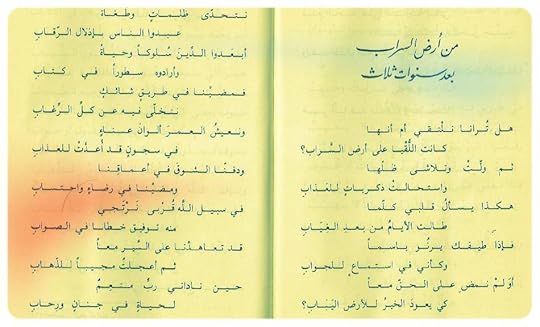 من أرض السراب
بعد سنوات ثلاث
هل تُرانا نلتقي أم أنها
كانت اللُّقيا على أرض السَّراب؟
ثم ولَّتْ وتلاشى ظلُّها
واستحالتْ ذكرياتٍ للعذاب
هكذا يسألُ قلبي كلَّما
طالت الأيامُ من بعدِ الغيَاب
فإذا طيفُك يرنُو باسماً
وكأني في استماعٍ للجواب
أوَ لم نمضِ على الحقِّ معاً
كي يعودَ الخيرُ للأرضِ اليَبَابِ؟
نتحدَّى ظلماتٍ وطغاةً
عبدوا الناس بإذلال الرّقابِ
أبعدوا الدِّينَ سُلوكاً وحياةً
وأرادوه سطوراً في كتابِ
فمضينا في طريقٍ شائكٍ
نتخلَّى فيه عن كلِّ الرِّغابِ
ونعيشُ العمرَ ألوانَ عناءٍ
في سجونٍ قد أُعدَّتْ للعذابِ
ودفنَّا الشوقَ في أعماقِنا
ومضينا في رضاءٍ واحتسابِ
في سبيل اللَّه قُرْبى نَرتَجي
منه توفيق خطانا في الصوابِ
قد تعاهدْنا على السَّيرِ معاً
ثم أعجلتُ مجيباً للذهابِ
حين ناداني ربٌّ منعِمٌ
لحياةٍ في جنانٍ ورحابِ